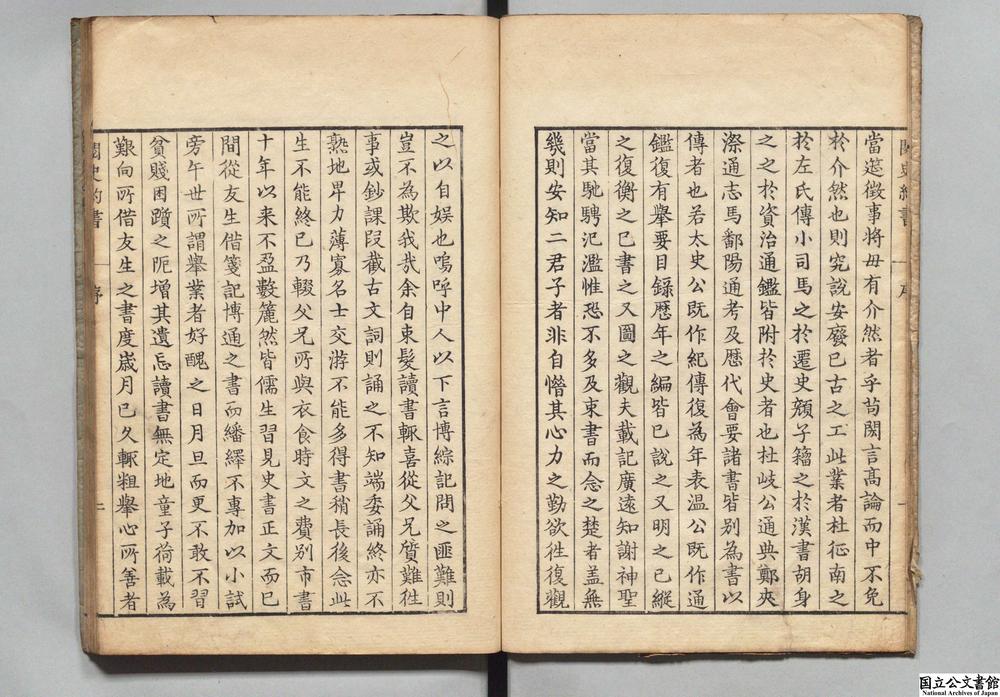 當遝徵事將毋有介然者乎苟閎言高論而中不免
於介然也則究說安廢已古之工此業者杜征南之
於左氏傳小司馬之於遷史顏子籀之於漢書胡身
之之於資治通鑑皆附於史者也杜岐公通典鄭夾
漈通志馬鄱陽通考及歷代會要諸書皆別為書以
傳者也若太史公既作紀傳復為年表溫公既作通
鑑復有舉要目錄歷年之編皆已說之又明之已縱
之復衡之已書之又圖之觀夫載記廣遠知謝神聖
當其馳騁汜濫惟恐不多及東書而念之楚者盖無
幾則安知二君子者非自憯其心力之勤欲徃復觀
閱史約書 序 一
之以自娛也嗚呼中人以下言博綜記問之匪難則
豈不為欺我哉余自束髮讀書輒喜從父兄質難徃
事或鈔課段截古文詞則誦之不知端委誦終亦不
熟地卑力薄寡名士交游不能多得書稍長後念此
生不能終已乃輟父兄所與衣食時文之費別市書
十年以来不盈數簏然皆儒生習見史書正文而已
間從友生借箋記博通之書而繙繹不專加以小試
旁午世所謂舉業者好醜之日月旦而更不敢不習
貧賤困躓之阨增其遺忘讀書無定地童子荷載為
艱向所借友生之書度歲月已久輒粗舉心所善者
閱史約書 序 二
国立公文書館
National Archives of Japan